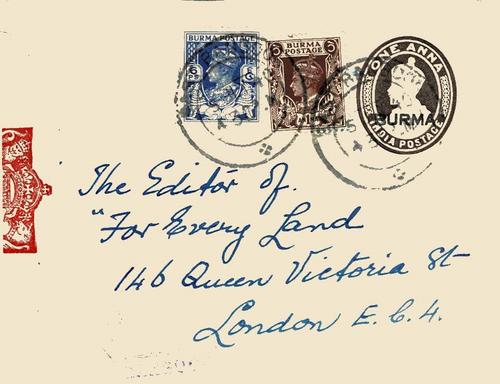 BURMA POSTAGE
BURMA
POSTAGE
ONE ANNA
BURMA
INDIA POSTAGE
The Editor of.
"For Every Land
146 Queen Victoria St
London E.C.4.